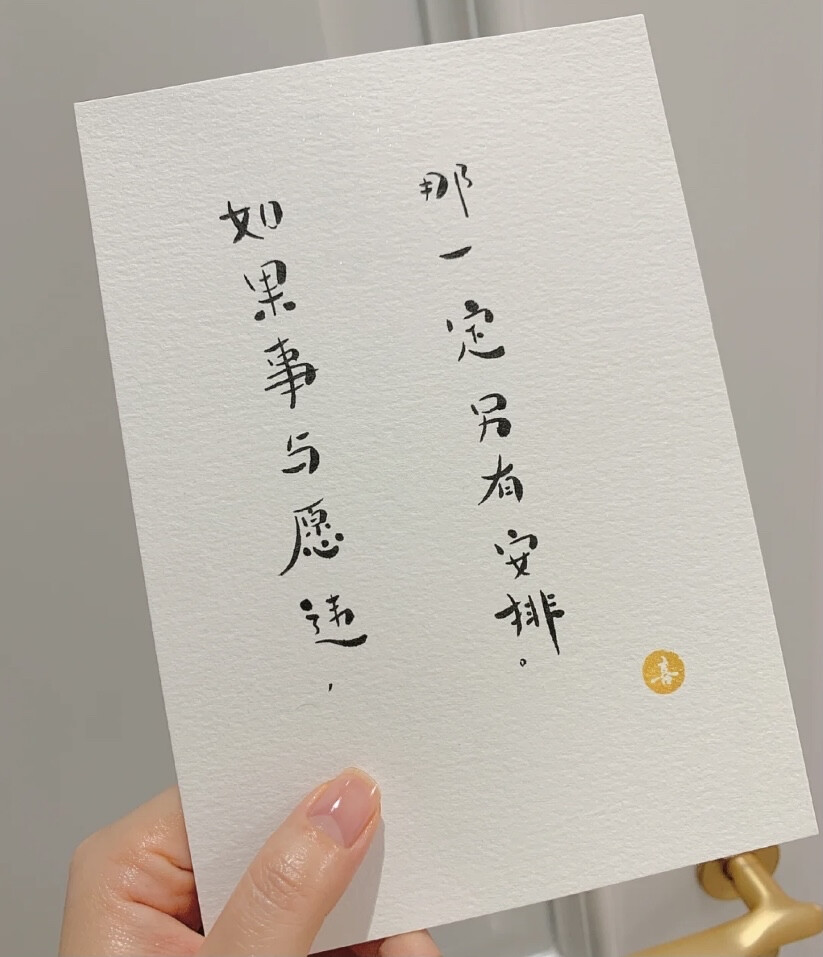 如果事与愿违，
那一定另有安排。
喜